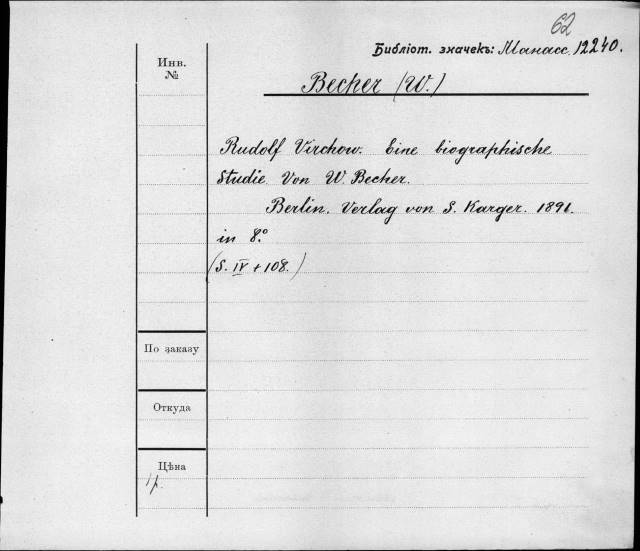 62
Библіот. значекъ: Манасс. 12240.
Инв.
№
Becher (W.)
Rudolf Virchow. Eine biographische
Studie. Von W. Becher.
Berlin. Verlag von S. Karger. 1891.
in 8.°
(S. IV + 108.)
По заказу
Откуда
Цѣна
1 р.